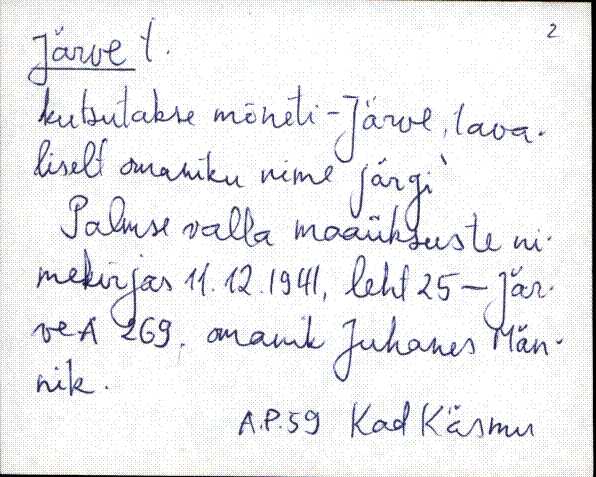 2
Järve t.
kutsutakse mõneti - Järve, tava-
liselt omaniku nime järgi
Palmse valla maaüksuste ni-
mekirjas 11.12.1941, leht 25 - Jär-
ve A 269, omanik Juhanes Män-
nik.
A.P.59 Kad Käsmu